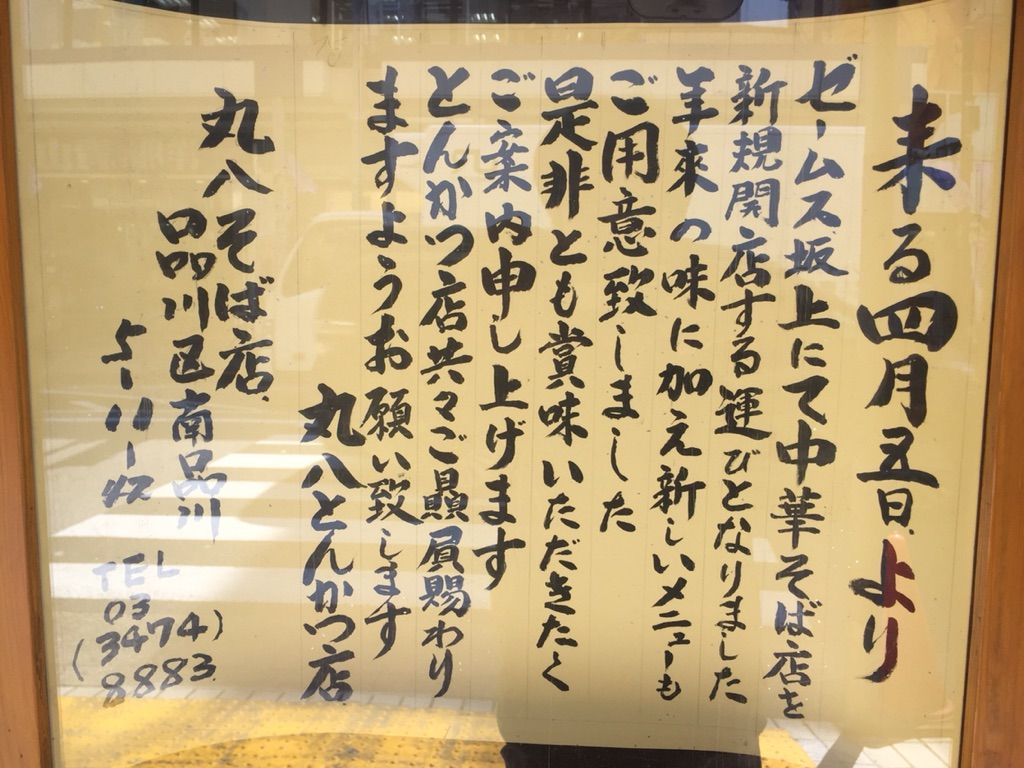 来る四月五日より
ゼームス坂上にて中華そば店を
新規開店する運びとなりました
羊来の味に加え新しいメニューも
ご用意致しました
是非とも賞味いただきたく
ご案内申し上げます
とんかつ店共々ご贔屓賜わり
ますようお願い致します
丸八とんかつ店
丸八そば店
品川区南品川
5-11-42
TEL
03
(3474)
8883